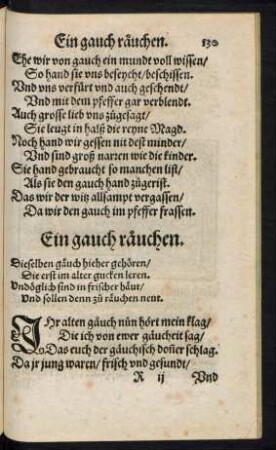 Ein gauch räuchen. 130
Ehe wir von gauch ein mundt voll wissen/
So hand sie vns beseycht/beschissen.
Vnd vns verfürt vnd auch geschendt/
Vnd mit dem pfeffer gar verblendt.
Auch grosse lieb vns zůgesagt/
Sie leugt in halß die reyne Magd.
Noch hand wir gessen nit dest minder/
Vnd sind groß narren wie die kinder.
Sie hand gebraucht so manchen list/
Als sie den gauch hand zůgerist.
Das wir der witz allsampt vergassen/
Da wir den gauch im pfeffer frassen.
Ein gauch räuchen.
Dieselben gäuch hieher gehören/
Sie erst im alter gucken leren.
Vndöglich sind in frischer häut/
Vnd sollen denn zů räuchen nent.
IHr alten gäuch nůn hört mein klag/
Die ich von ewer gäucheit sag/
Das euch der gäuchisch doñer schlag.
Da jr jung waren/ frisch vnd gesundt/
R ij Vnd